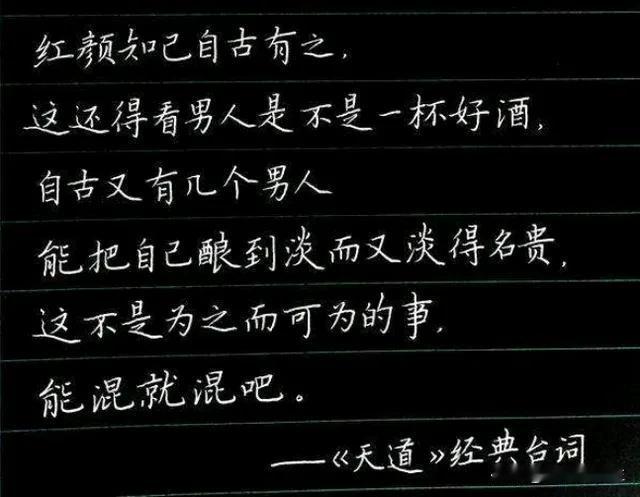 红颜知己自古有之,
这还得看男人是不是一杯好酒,
自古又有几个男人
能把自己酿到淡而又淡得名贵,
这不是为之而可为的事,
能混就混吧。
——《天道》经典台词